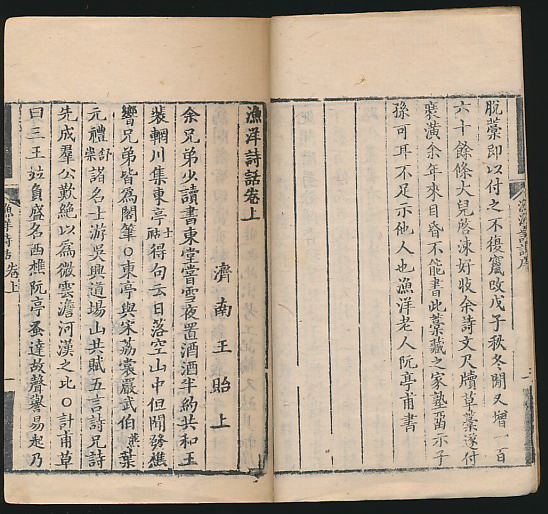 脫藁即以付之不復竄改戊子秋冬間又增一百
六十餘條大兒啓涑好收余詩文尺牘草藁遂付
裝潢余年來目昏不能書此藁藏之家塾留示子
孫可耳不足示他人也漁洋老人阮亭甫書
漁洋詩話卷上
濟南王貽上
余兄弟少讀書東堂嘗雪夜置酒酒半約共和王
裴輞川集東亭士祜得句云日落空山中但聞發樵
響兄弟皆為閣筆○東亭與宋荔裳嚴武伯熊葉
元禮舒崇諸名士游吳興道場山共賦五言詩兄詩
先成羣公歎絶以為微雲澹河漢之比○計甫草
曰三王竝負盛名西樵阮亭蚤達故聲譽易起乃
漁洋詩話 卷上 一